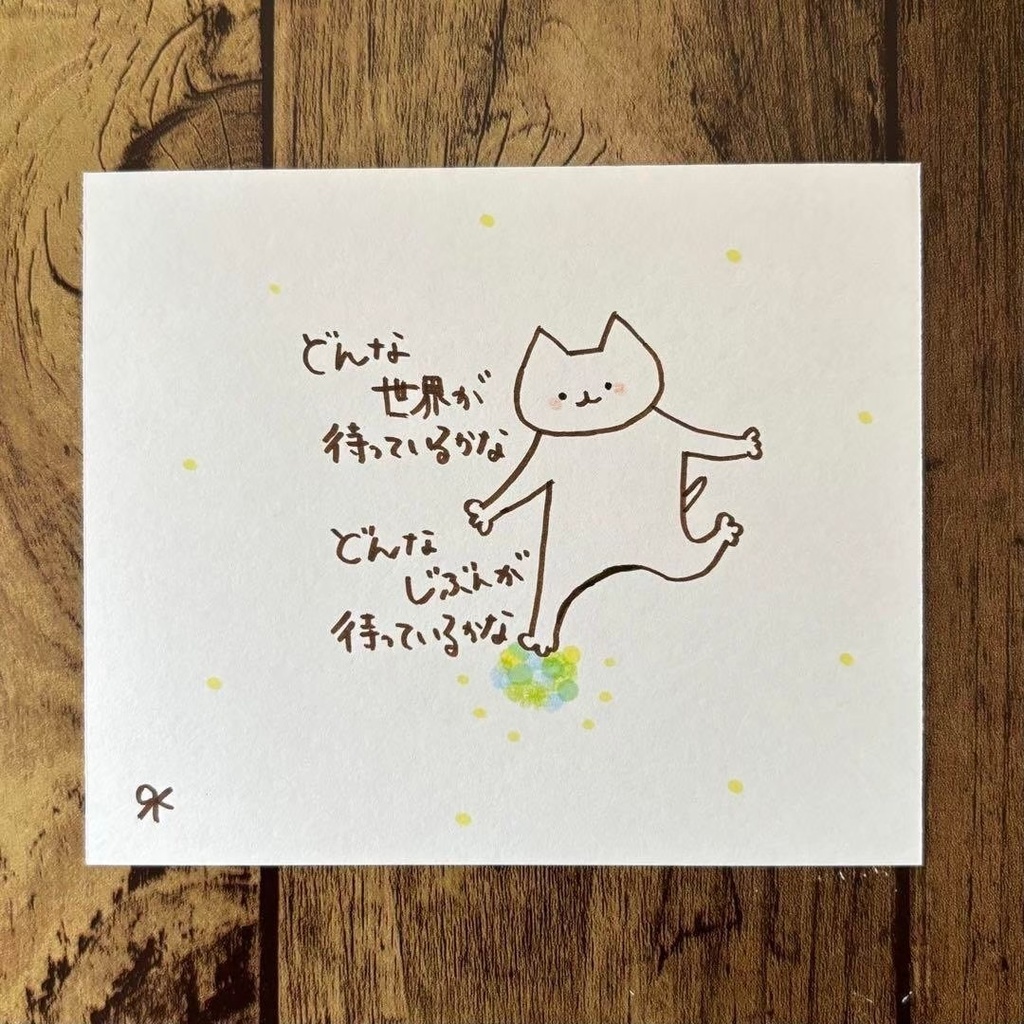 どんな
世界が
待っているかな
どんな
じぶんが
待っているかな